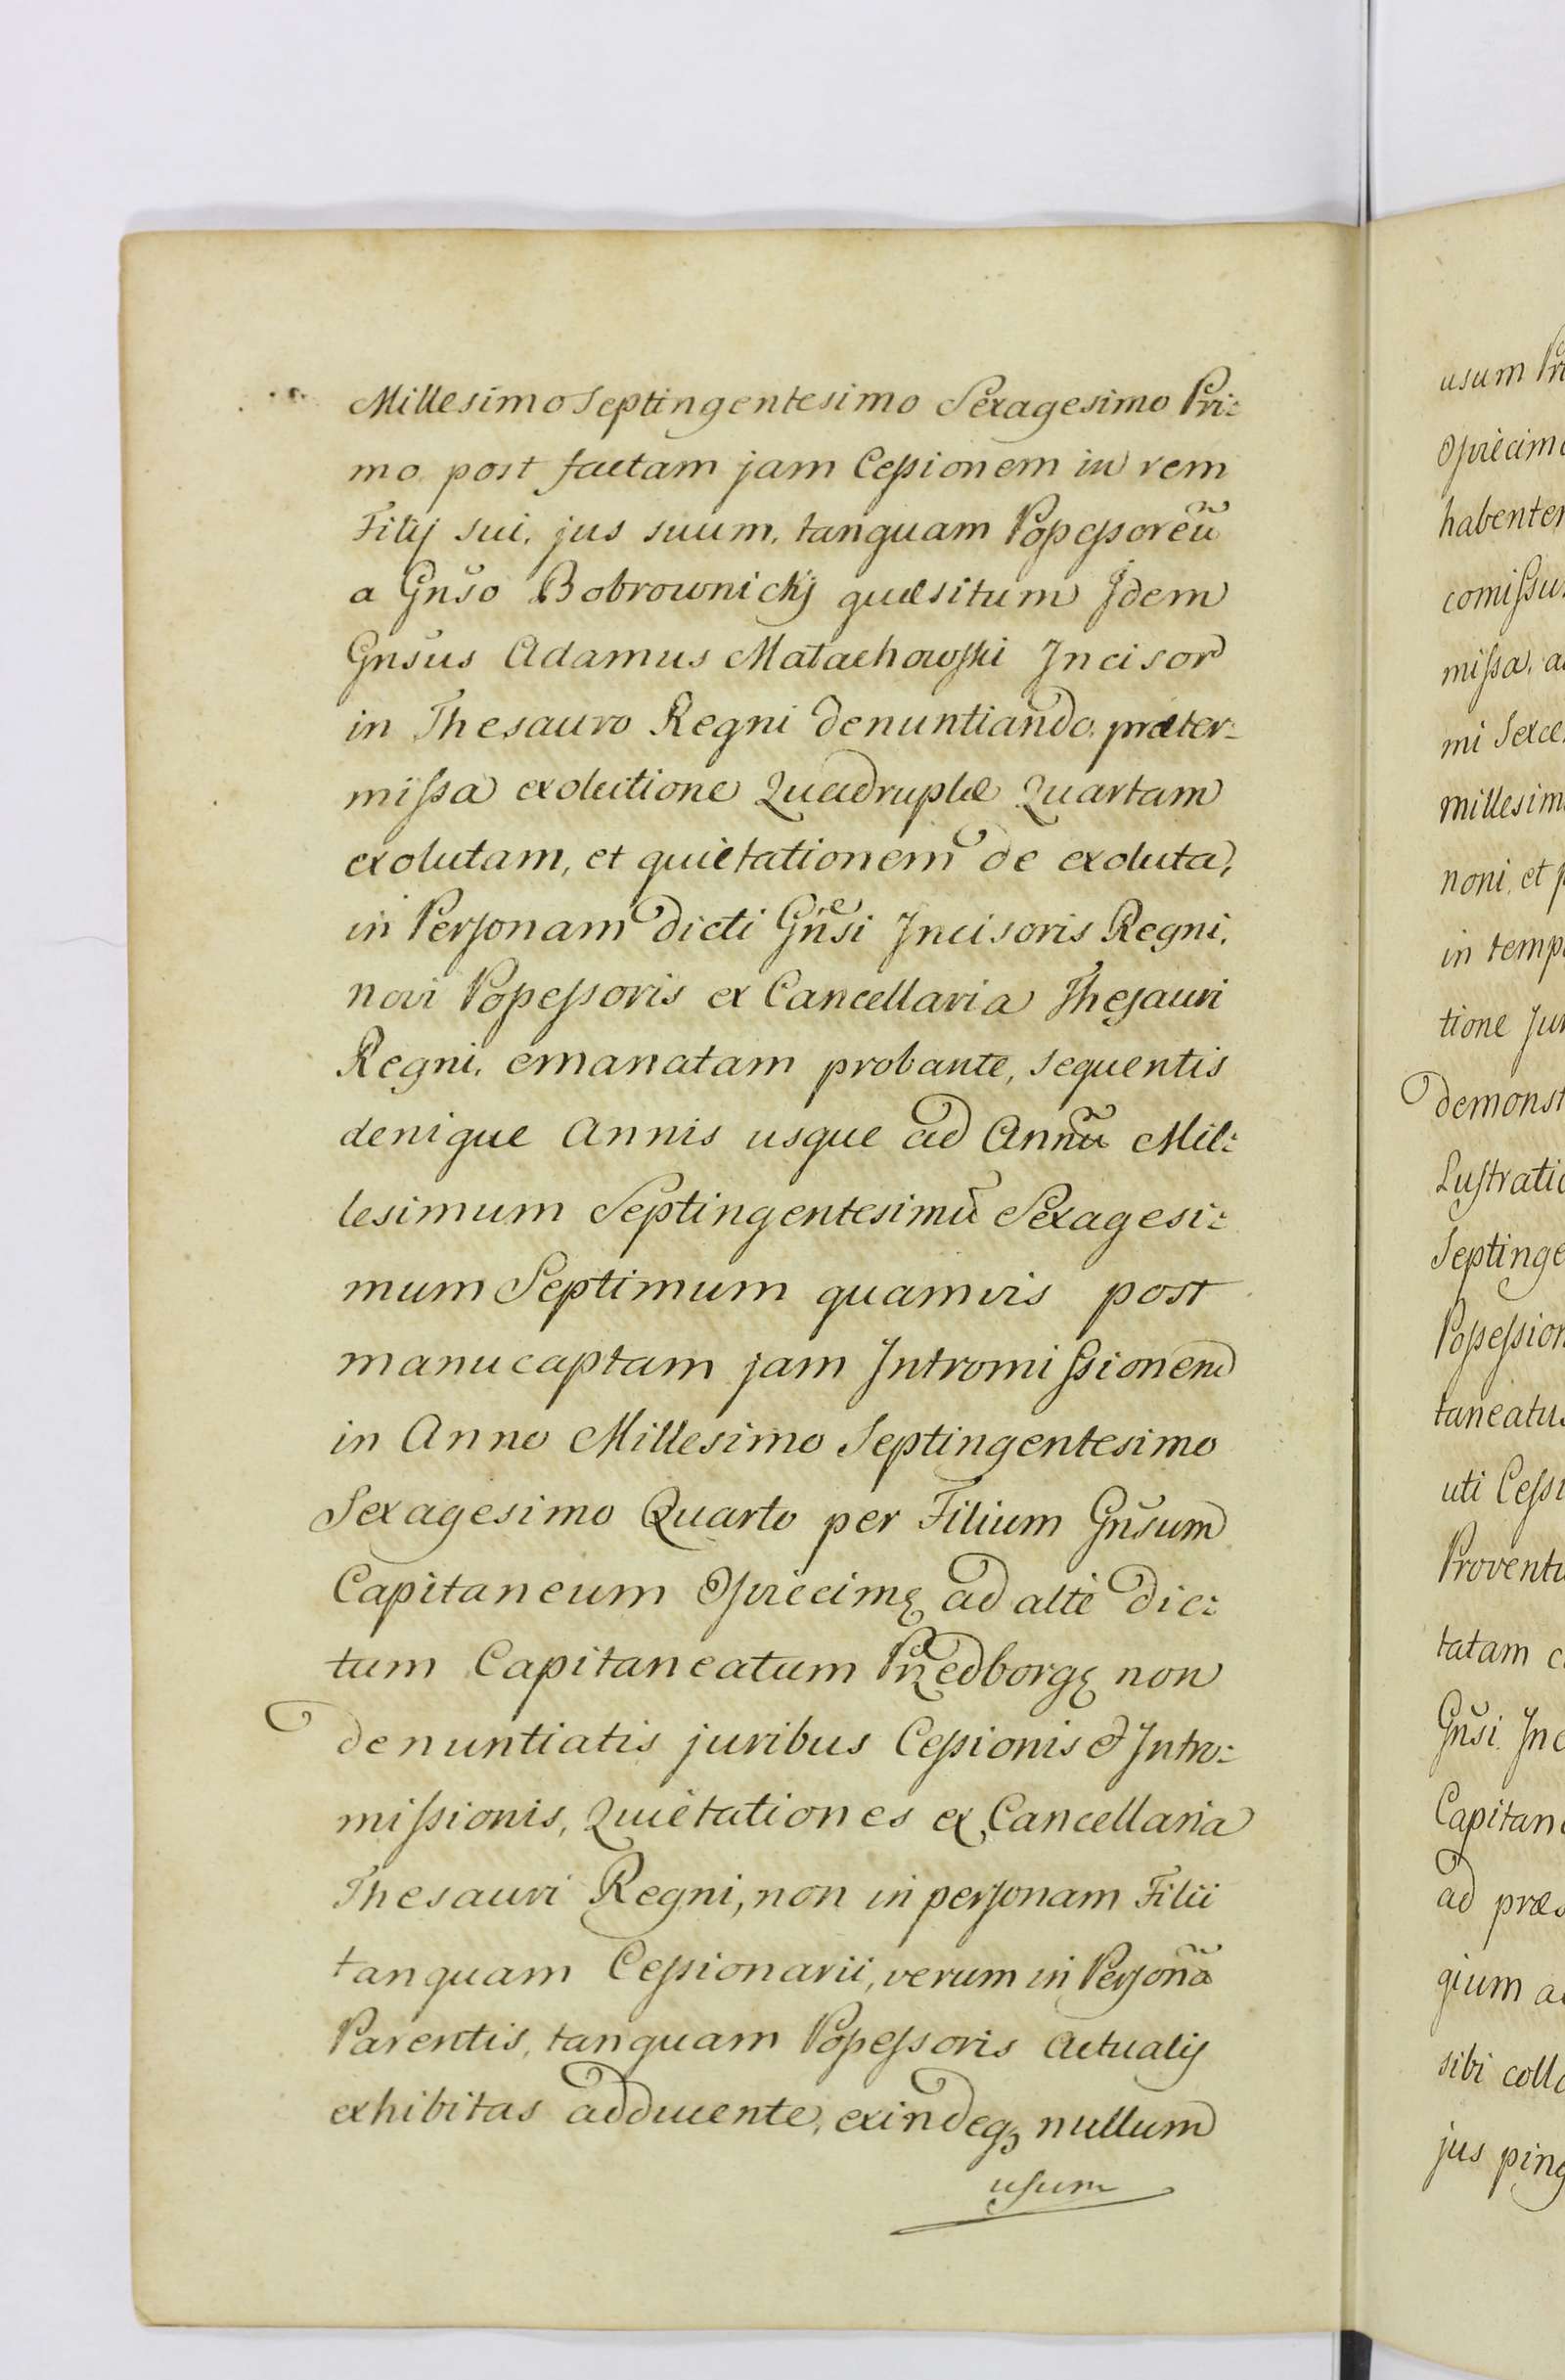 Millesimo Septingentesimo Sexagesimo Pri:
mo post factam jam Cessionem in rem
Filij sui, jus suum, tanquam Possessoreũ
a Gnso Bobrownickj quæsitum Idem
Gnsus Adamus Małachowski Incisor
in Thesauro Regni denuntiando, præter:
missa exolutione Quadruplæ Quartam
exolutam, et quietationem de exoluta,
in Personam dicti Gnsi Incisoris Regni,
novi Possessoris ex Cancellaria Thesauri
Regni, emanatam probante, sequentis
denique Annis usque ad Annũ Mil:
lesimum Septingentesimũ Sexagesi:
mum Septimum quamvis post
manucaptam jam Intromissionem
in Anno Millesimo Septingentesimo
Sexagesimo Quarto per Filium Gnsum
Capitaneum Opiecimę ad altè dic:
tum Capitaneatum Przedborgę non
denuntiatis juribus Cessionis & Intro:
missionis, Quietationes ex Cancellaria
Thesauri Regni, non in personam Filii
tanquam Cessionarii, verum in Personã
Parentis, tanquam Possessoris Actualis
exhibitas adducente, exindeqꝫ nullum
usum
usum
habenter
comissu
missa, a
mi Sexce
millesim
noni, et p
in temp
tione Jur
demonst
Lustratio
Septinge
Possession
taneatu
uti Cessi
Proventu
tatam c
Gnsi Inc
Capitan
ad præs
gium a
sibi colla
jus ping